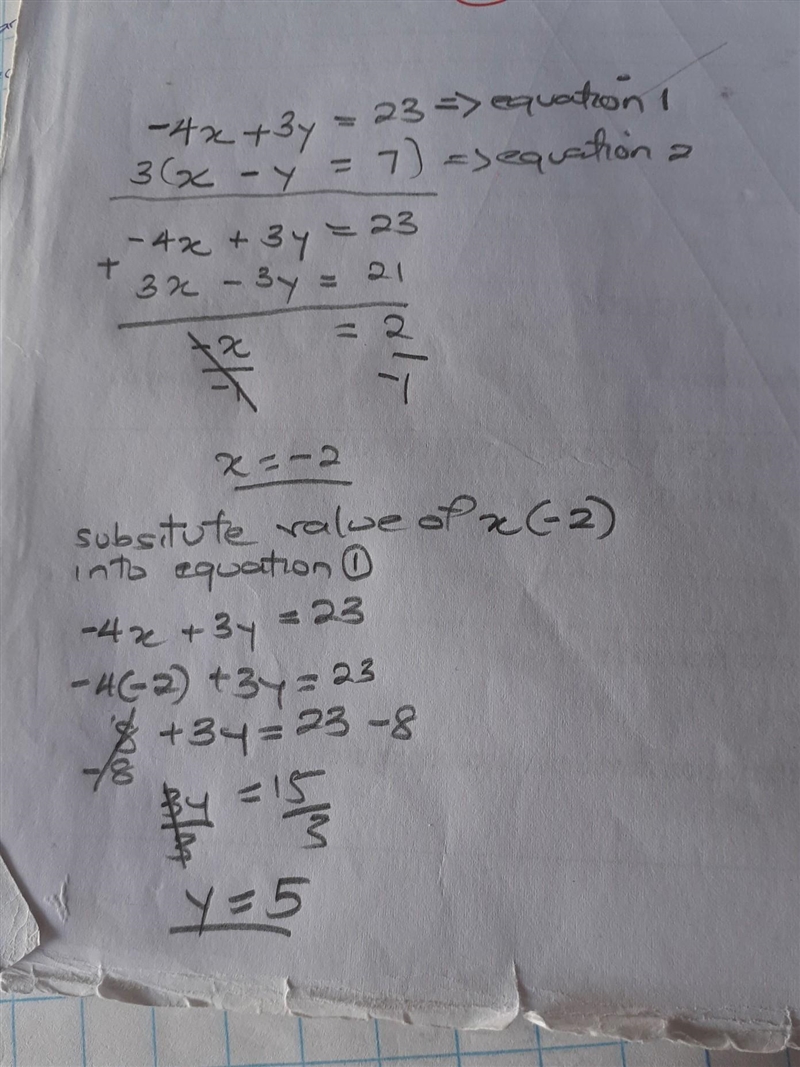 -4x + 3y = 23 => equation 1
3(x - y = 7) => equation 2
-4x + 3y = 23
+ 3x - 3y = 21
-x = 2
-1 -1
x = -2
subsitute value of x (-2)
into equation ①
-4x + 3y = 23
-4(-2) + 3y = 23
8 + 3y = 23 - 8
-8
3y = 15
3 3
y = 5